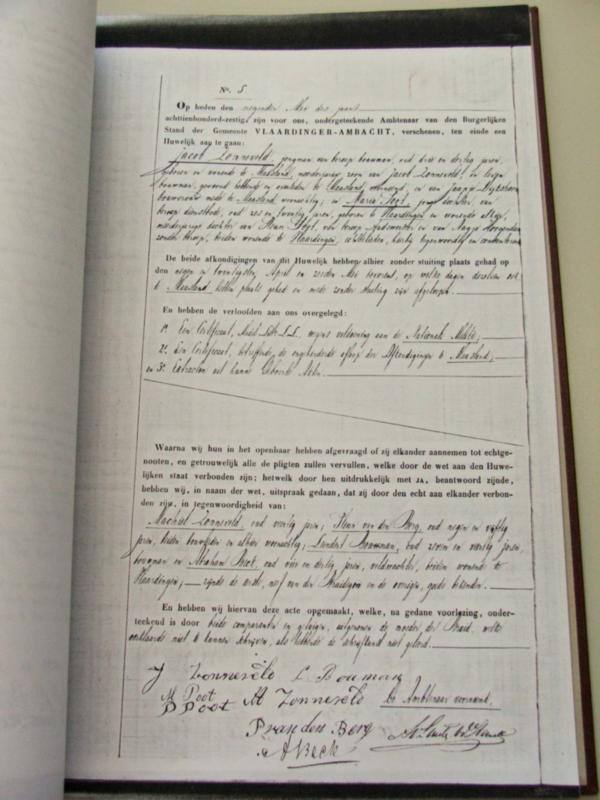 N°. 5
Op heden den negenden Mei des jaars
achttienhonderd-zestig, zijn voor ons, ondergeteekende Ambtenaar van den Burgerlijken
Stand der Gemeente VLAARDINGER-AMBACHT, verschenen, ten einde een
Huwelijk aan te gaan:
Jacob Zonneveld, jongman van beroep bouwman, oud drie en dertig jaren,
geboren en wonende te Maasland, meerderjarige zoon van Jacob Zonneveld, in leven
bouwman, gewoond hebbende en overleden te Maasland voornoemd, en van
bouwvrouw mede te Maasland woonachtig; en Maria Poot, jonge dochter, van
beroep dienstbode, oud zes en twintig jaren, geboren te Vlaardingen en wonende alhier,
meerderjarige dochter van Poot, van beroep en van
zonder beroep, beiden wonende te Vlaardingen, hierbij tegenwoordig en
De beide afkondigingen van dit Huwelijk hebben alhier zonder stuiting plaats gehad op
den negen en twintigsten April en zesden Mei bevorens, op welke dagen dezelven ook
te Maasland hebben plaats gehad en mede zonder stuiting zijn afgeloopen.
En hebben de verloofden aan ons overgelegd:
1°. Een Certificaat, wegens voldoening aan de Nationale Militie;
2°. Een Certificaat, betreffende de ongehinderde afloop der Afkondigingen te Maasland;
en 3°. Extracten uit hunne Geboorte Akten.
Waarna wij hun in het openbaar hebben afgevraagd of zij elkander aannemen tot echtge-
nooten, en getrouwelijk alle de pligten zullen vervullen, welke door de wet aan den Huwe-
lijken staat verbonden zijn; hetwelk door hen uitdrukkelijk met JA, beantwoord zijnde,
hebben wij, in naam der wet, uitspraak gedaan, dat zij door den echt aan elkander verbon-
den zijn, in tegenwoordigheid van:
Machiel Zonneveld, oud veertig jaren; van den Berg, oud negen en vijftig
jaren, beiden bouwlieden en alhier woonachtig; Leendert Bouwman, oud zeven en veertig jaren,
bouwman en Abraham Beck, oud vier en dertig jaren, veldwachter, beiden wonende te
Vlaardingen; zijnde de eerste, neef van den Bruidegom en de overigen, goede bekenden.
En hebben wij hiervan deze acte opgemaakt, welke, na gedane voorlezing, onder-
teekend is door beide comparanten en getuigen, uitgenomen de moeder des Bruid, welke
verklaarde niet te kunnen schrijven, als hebbende de schrijfkunst niet geleerd.
J Zonneveld L Bouman
M Poot M Zonneveld De Ambtenaar voornoemd,
P Poot
P van den Berg
A Beck